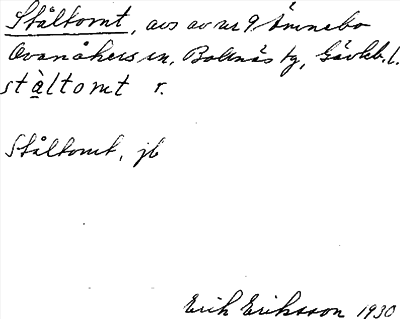 Ståltomt, avs av nr 9 Ämnebo
Ovanåkers sn, Bollnäs tg, Gävleb. l.
stàltomt r.
Ståltomt, jb
Erik Eriksson 1930